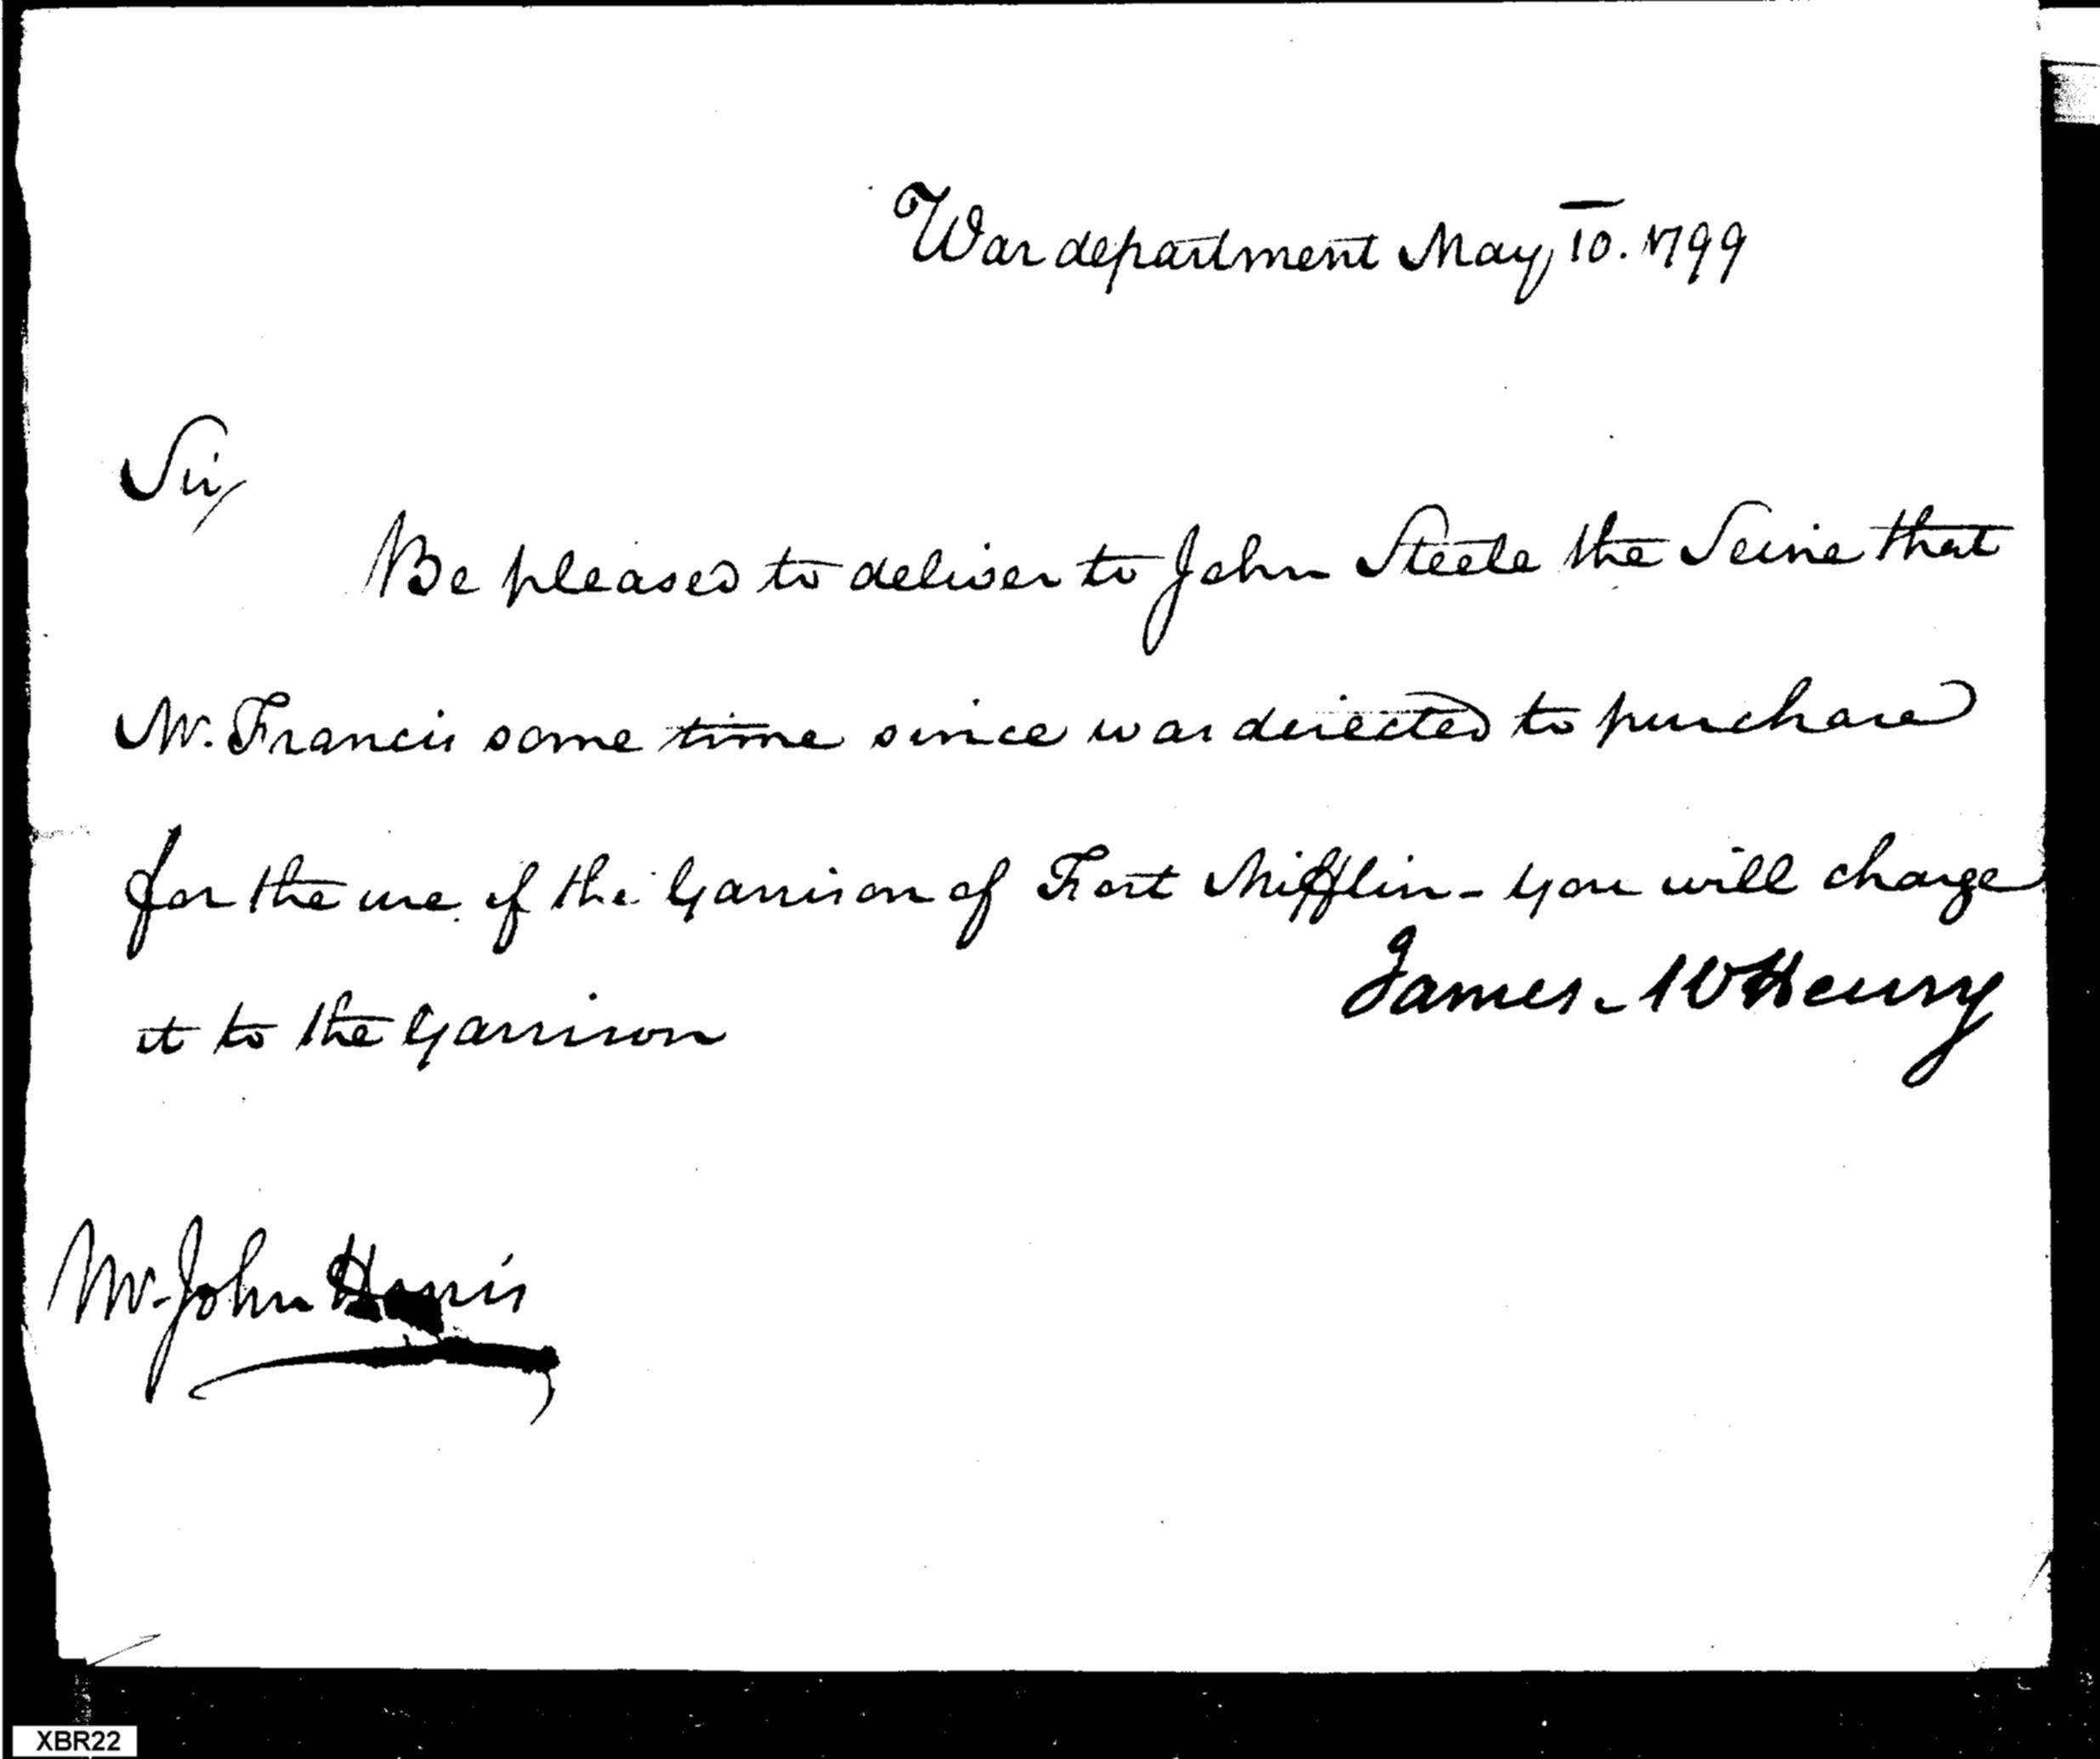 War department May 10. 1799
Sir,
Be pleased to deliver to John Steele the Seine that
Mr. Francis some time since was directed to purchase
for the use of the Garrison of Fort Mifflin - you will charge
it to the Garrison
James McHenry
Mr. John Harris
XBR22